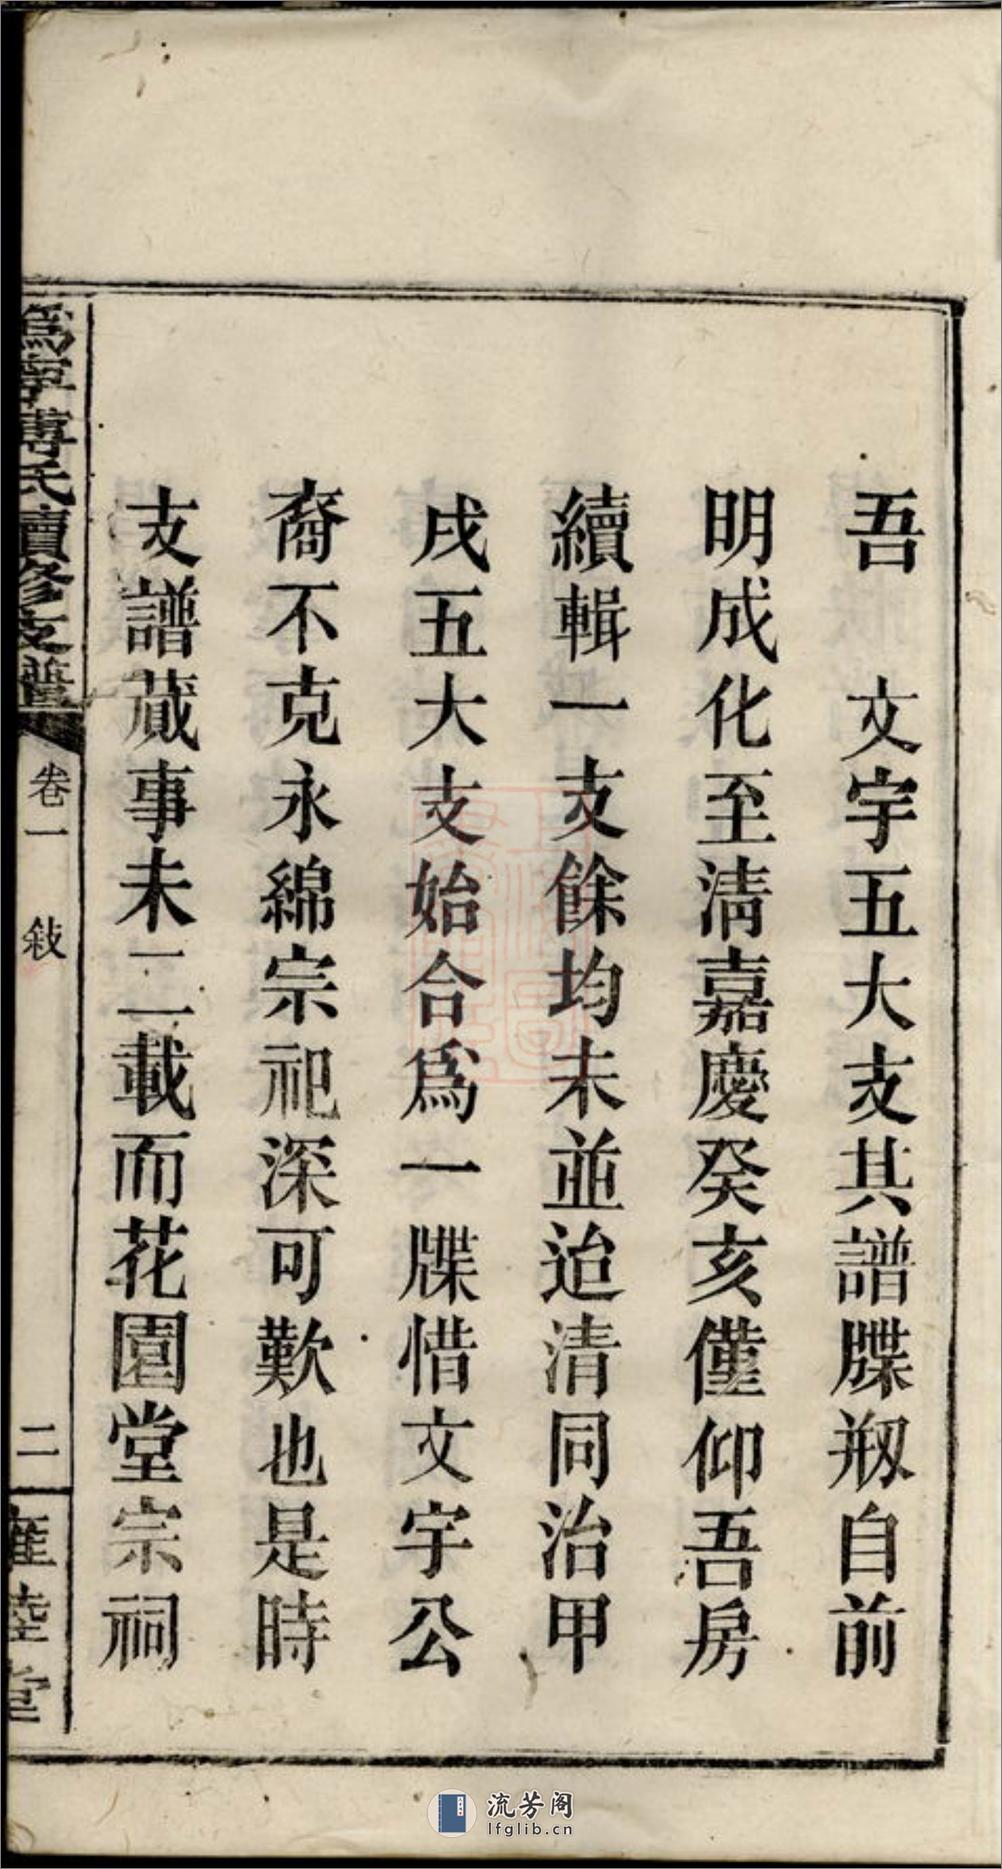 吾　文宇五大支其譜牒剏自前
明成化至淸嘉慶癸亥僅仰吾房
續輯一支餘均未並迨清同治甲
戌五大支始合爲一牒惜文宇公
裔不克永綿宗祀深可歎也是時
支譜蕆事未一二載而花園堂宗祠
爲寧傅氏續修支譜
卷一　敍
二
雍睦堂
流芳阁
lfglib.cn